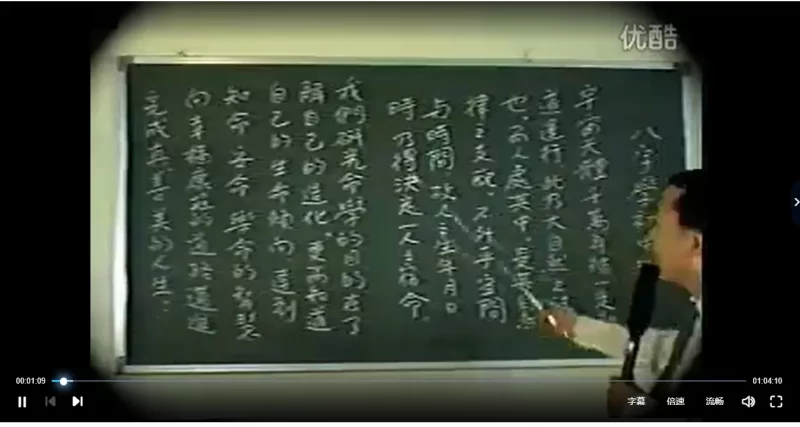 优酷
八字學
宇宙天體千萬
道運行 此乃大自然之
也、而人處其中
律之支配 不外乎空間
与時間 故人之生年月日
時乃得決定一人之宿命。
我們研究命學的目的在了
解自己的造化、更而知道
自己的生命傾向 達到
知命 安命 學命的智慧
向幸福康莊的道路邁進
完成真善美的人生..
00:01:09
01:04:10
字幕 倍速 流畅